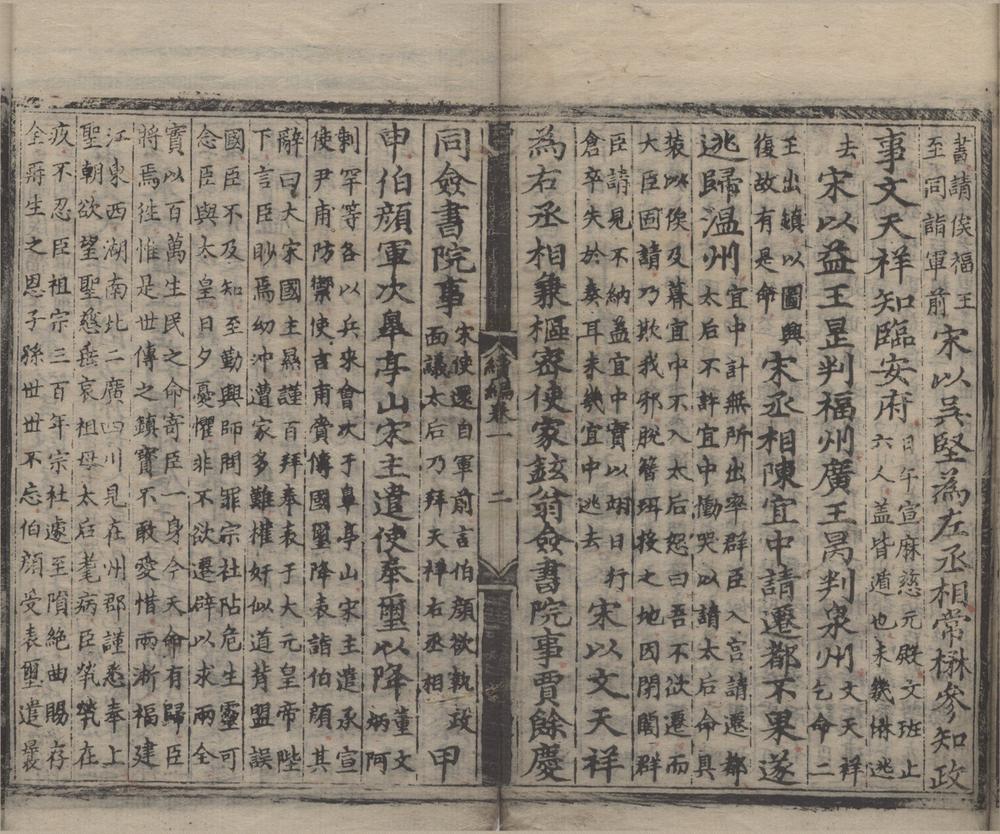 書請俟福王
至同詣軍前宋以吳堅為左丞相常楙參知政
事文天祥知臨安府日午宣麻慈元殿文班止
六人蓋皆遁也未幾楙逃
去宋以益王昰判福州廣王昺判泉州文天祥
乞命二
王出鎮以圖興
復故有是命宋丞相陳宜中請遷都不果遂
逃歸溫州宜中計無所出率群臣入宮請遷都
太后不許宜中慟哭以請太后命具
裝以俟及暮宜中不入太后怒曰吾不欲遷而
大臣固請乃欺我邪脫簪珥投之地因閉閤群
臣請見不納蓋宜中實以翊日行
倉卒失於奏耳未幾宜中逃去宋以文天祥
為右丞相兼樞密使家鉉翁僉書院事賈餘慶
續編卷一 二
同僉書院事宋使還自軍前言伯顏欲執政
面議太后乃拜天祥右丞相甲
申伯顏軍次皐亭山宋主遣使奉璽以降董文
炳阿
剌罕等各以兵來會次于皐亭山宋主遣承宣
使尹甫防禦使吉甫賞傳國璽降表詣伯顏其
辭曰大宋國主㬎謹百拜奉表于大元皇帝陛
下言臣眇焉幼沖遭家多難權奸似道背盟誤
國臣不及知至勤興師問罪宗社阽危生靈可
念臣與太皇日夕憂懼非不欲遷辟以求兩全
實以百萬生民之命寄臣一身今天命有歸臣
將焉徃惟是世傳之鎮寶不敢愛惜兩淅福建
江東西湖南北二廣四川見在州郡謹悉奉上
聖朝欲望聖慈垂哀祖母太后耄病臣煢煢在
疚不忍臣祖宗三百年宗社遽至隕絕曲賜存
全再生之恩子孫世世不忘伯顏受表璽遣